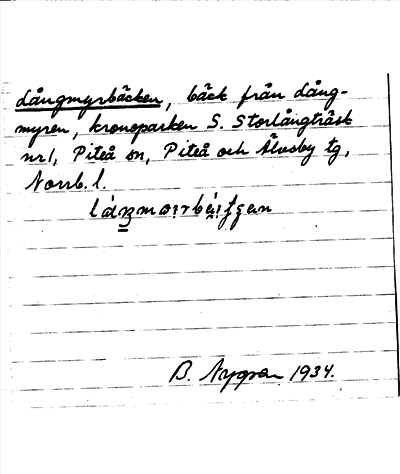 Långmyrbäcken, bäck från Lång-
myren, kronoparken S. Storlångträsk
nr 1, Piteå sn, Piteå och Älvsby tg,
Norrb. l.
B. Nygren 1934.